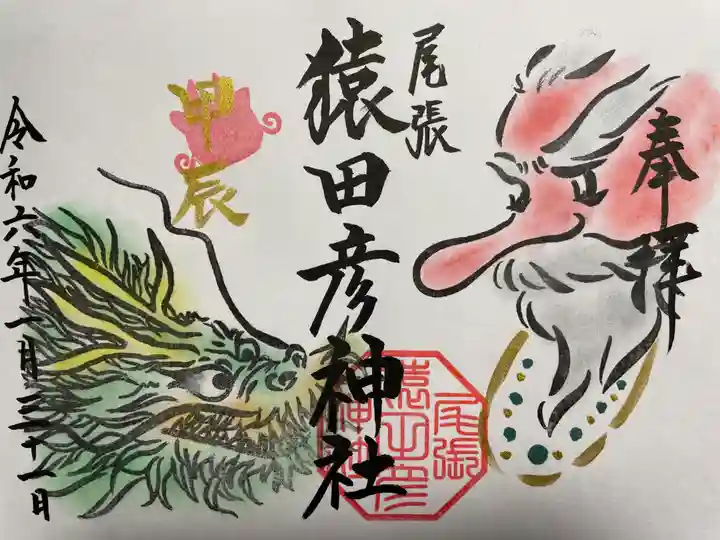 奉拝
尾張
猿田彦神社
尾張
猿田彦
神社
甲辰
令和六年一月三十一日